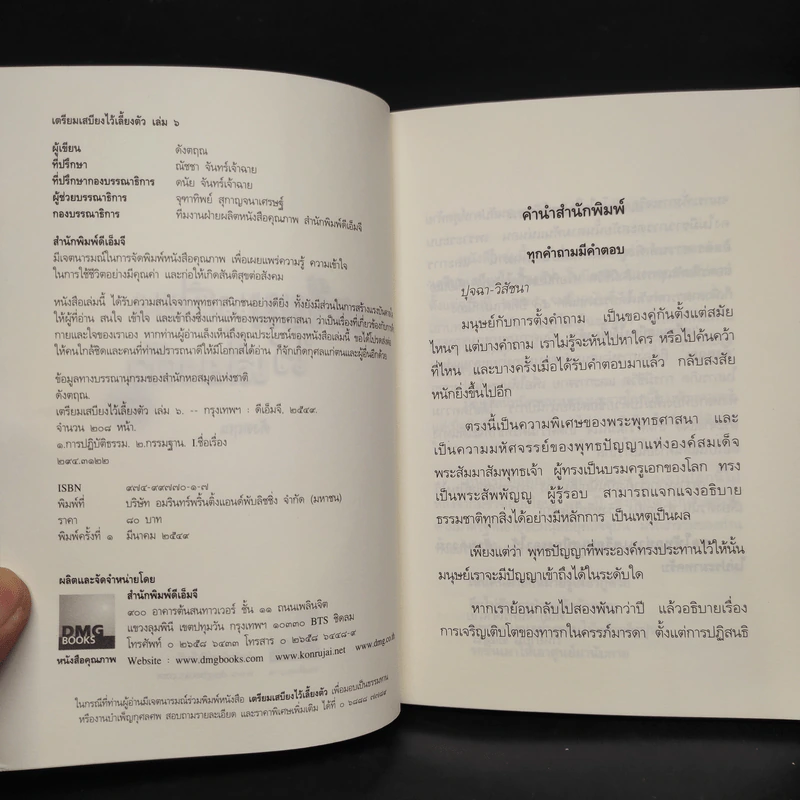 เตรียมเสบียงไว้เลี้ยงตัว เล่ม ๖
ผู้เขียน ดังตฤณ
ที่ปรึกษา ณัชชา จันทร์เจ้าฉาย
ที่ปรึกษากองบรรณาธิการ ดนัย จันทร์เจ้าฉาย
ผู้ช่วยบรรณาธิการ จุฑาทิพย์ สุกาญจนาเศรษฐ์
กองบรรณาธิการ ทีมงานฝ่ายผลิตหนังสือคุณภาพ สำนักพิมพ์ดีเอ็มจี
สำนักพิมพ์ดีเอ็มจี
มีเจตนารมณ์ในการจัดพิมพ์หนังสือคุณภาพ เพื่อเผยแพร่ความรู้ ความเข้าใจ
ในการใช้ชีวิตอย่างมีคุณค่า และก่อให้เกิดสันติสุขต่อสังคม
หนังสือเล่มนี้ ได้รับความสนใจจากพุทธศาสนิกชนอย่างดียิ่ง ทั้งยังมีส่วนในการสร้างแรงบันดาลใจ
ให้ผู้ที่อ่าน สนใจ เข้าใจ และเข้าถึงซึ่งแก่นแท้ของพระพุทธศาสนา ว่าเป็นเรื่องที่เกี่ยวข้องกับ
กายและใจของเราเอง หากท่านผู้อ่านเล็งเห็นถึงคุณประโยชน์ของหนังสือเล่มนี้ ขอได้โปรด
ให้คนใกล้ชิดและคนที่ท่านปรารถนาดีให้มีโอกาสได้อ่าน ก็จักเกิดกุศลแก่ตนและผู้อื่นอีกด้วย
ข้อมูลทางบรรณานุกรมของสำนักหอสมุดแห่งชาติ
ดังตฤณ.
เตรียมเสบียงไว้เลี้ยงตัว เล่ม ๖. -- กรุงเทพฯ : ดีเอ็มจี, ๒๕๔๙.
จำนวน ๒๐๘ หน้า.
๑.การปฏิบัติธรรม. ๒.กรรมฐาน. I.ชื่อเรื่อง
๒๙๔.๓๑๒๒
ISBN ๙๗๔-๙๙๗๗๐-๑-๗
พิมพ์ที่ บริษัท อมรินทร์พริ้นติ้งแอนด์พับลิชชิ่ง จำกัด (มหาชน)
ราคา ๘๐ บาท
พิมพ์ครั้งที่ ๑ มีนาคม ๒๕๔๙
ผลิตและจัดจำหน่ายโดย
สำนักพิมพ์ดีเอ็มจี
๙๐๐ อาคารต้นสนทาวเวอร์ ชั้น ๑๑ ถนนเพลินจิต
แขวงลุมพินี เขตปทุมวัน กรุงเทพฯ ๑๐๓๓๐ BTS ชิดลม
โทรศัพท์ ๐ ๒๖๕๘ ๖๔๓๓ โทรสาร ๐ ๒๖๕๘ ๖๔๔๘-๙
DMG
BOOKS
หนังสือคุณภาพ Website : www.dmgbooks.com www.konrujai.net www.dmg.co.th
ในกรณีที่ท่านผู้อ่านมีเจตนารมณ์ร่วมพิมพ์หนังสือ เตรียมเสบียงไว้เลี้ยงตัว เพื่อมอบเป็นธรรมทาน
หรืองานบำเพ็ญกุศลศพ สอบถามรายละเอียด และราคาพิเศษเพิ่มเติม ได้ที่
คำนำสำนักพิมพ์
ทุกคำถามมีคำตอบ
ปุจฉา-วิสัชนา
มนุษย์กับการตั้งคำถาม เป็นของคู่กันตั้งแต่สมัย
ไหนๆ แต่บางคำถาม เราไม่รู้จะหันไปหาใคร หรือไปค้นคว้า
ที่ไหน และบางครั้งเมื่อได้รับคำตอบมาแล้ว กลับสงสัย
หนักยิ่งขึ้นไปอีก
ตรงนี้เป็นความพิเศษของพระพุทธศาสนา และ
เป็นความมหัศจรรย์ของพุทธปัญญาแห่งองค์สมเด็จ
พระสัมมาสัมพุทธเจ้า ผู้ทรงเป็นบรมครูเอกของโลก ทรง
เป็นพระสัพพัญญู ผู้รู้รอบ สามารถแจกแจงอธิบาย
ธรรมชาติทุกสิ่งได้อย่างมีหลักการ เป็นเหตุเป็นผล
เพียงแต่ว่า พุทธปัญญาที่พระองค์ทรงประทานไว้ให้นั้น
มนุษย์เราจะมีปัญญาเข้าถึงได้ในระดับใด
หากเราย้อนกลับไปสองพันกว่าปี แล้วอธิบายเรื่อง
การเจริญเติบโตของทารกในครรภ์มารดา ตั้งแต่การปฏิสนธิ